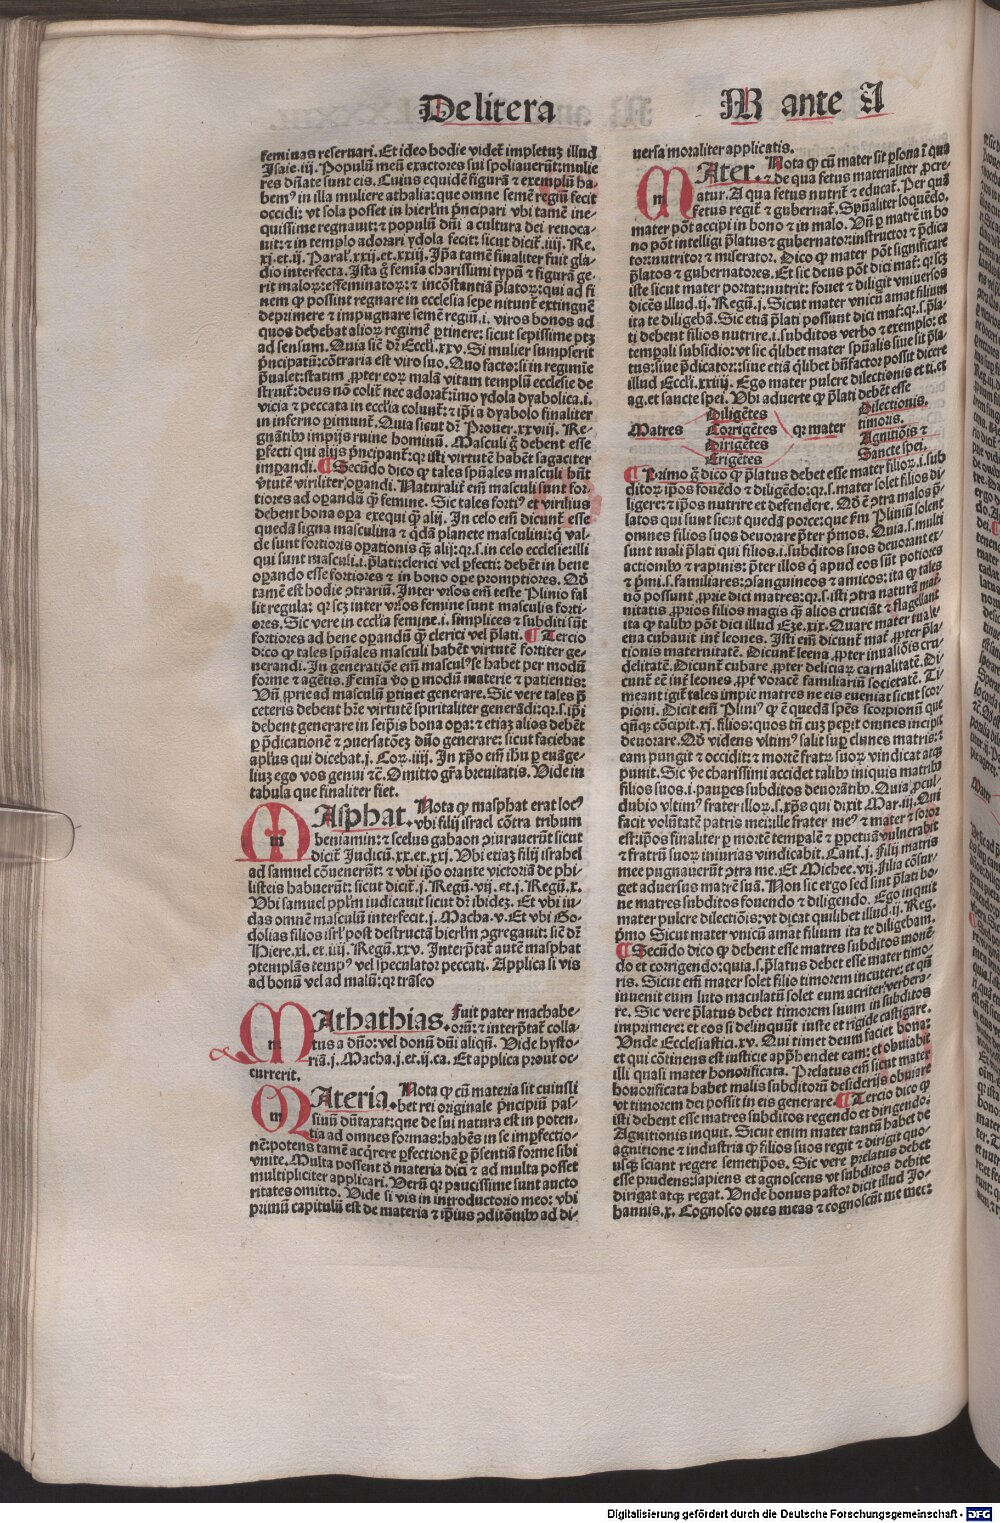 De litera
M ante A
feminas reseruari. Et ideo hodie videt̃ impletuȝ illud
Isaie.iij. Populũ meũ exactores sui spoliauerũt:mulie
res dñate sunt eis. Cuius equidẽ figurã ⁊ exemplũ ha-
bemꝰ in illa muliere athalia:que omne semẽ regiũ fecit
occidi: vt sola posset in hierl'm p̃ncipari vbi tamẽ ine-
quissime regnauit:⁊ populũ dñi a cultura dei reuoca-
uit:⁊ in templo adorari ydola fecit: sicut dicit̃.iiij. Re.
xj.et.ij. Paral'.xxij.et.xxiij. Ip̃a tamẽ finaliter fuit gla-
dio interfecta. Ista g̃ femĩa charissimi typũ ⁊ figurã ge-
rit maloꝝ:effeminatoꝝ:⁊ incõstantiã p̃latoꝝ:qui ad fi
nem ꝙ possint regnare in ecclesia sepe nitunt̃ extinguẽ
deprimere ⁊ impugnare semẽ regiũ.i. viros bonos ad
quos debebat alioꝝ regimẽ ꝑtinere: sicut sepissime ptȝ
ad sensum. Quia siẽ dr̃ Eccl'i.xxv. Si mulier sumpserit
p̃ncipatũ:cõtraria est viro suo. Quo facto:si in regimie
p̃ualet:statim ꝓpter eoꝝ malã vitam templũ ecclesie de
struit̃:deus nõ colit̃ nec adorat̃:imo ydola dyabolica.i.
vicia ⁊ peccata in eccl'ia colunt̃:⁊ ip̃i a dyabolo finaliter
in inferno ꝑimunt̃. Quia sicut dr̃ Prouer.xxviij. Re-
gnãtibꝰ impijs ruine hominũ. Masculi g̃ debent esse
ꝑfecti qui alijs p̃ncipant̃:qꝛ isti virtutẽ habẽt sagaciter
imꝑandi. ¶ Secũdo dico ꝙ tales sp̃uales masculi hñt
v̾tutẽ viriliter oꝑandi. Naturalit̃ em̃ masculi sunt for-
tiores ad oꝑandũ ꝙ̃ femine. Sic tales fortiꝰ et virilius
debent bona oꝑa exequi ꝙ̃ alij. In celo em̃ dicunt̃ esse
quedã signa masculina ⁊ q̃dã planete masculini:q̃ val-
de sunt fortioris oꝑationis q̃ȝ alij:qꝛ.s.in celo ecclesie:illi
qui sunt masculi.i.p̃lati:clerici vel ꝑfecti: debẽt in bene
oꝑando esse fortiores ⁊ in bono oꝑe promptiores. Qð
tamẽ est hodie ꝯtrariũ. Inter vrsos em̃ teste Plinio fal
lit regula: qꝛ scȝ inter vrsos femine sunt masculis forti-
ores. Sic vere in eccl'ia femine.i. simplices ⁊ subditi sũt
fortiores ad bene oꝑandũ ꝙ̃ clerici vel p̃lati. ¶ Tercio
dico ꝙ tales sp̃uales masculi habẽt virtutẽ fortiter ge-
nerandi. In generatiõe em̃ masculꝰ se habet per modũ
forme ⁊ agẽtis. Femĩa v̾o ꝑ modũ materie ⁊ patientis:
Vñ ꝓprie ad masculũ ꝑtinet generare. Sic vere tales p̃
ceteris debent hr̃e virtutẽ spiritaliter generãdi:qꝛ.s.ip̃i
debent generare in seip̃is bona oꝑa:⁊ etiaȝ alios debẽt
ꝑ p̃dicationẽ ⁊ ꝯuersatõeȝ dño generare: sicut faciebat
apl'us qui dicebat.j. Coꝝ.iiij. In xp̃o em̃ ihũ ꝑ euãge-
liuȝ ego vos genui ⁊c̃. Omitto gr̃a breuitatis. Vide in
tabula que finaliter fiet.
MAsphat. Nota ꝙ masphat erat locꝰ
vbi filij israel cõtra tribum
beniamin:⁊ scelus gabaon ꝯiurauerũt sicut
dicit̃ Judicũ.xx.et.xxj. Vbi etiaȝ filij israhel
ad samuel cõuenerũt:⁊ vbi ip̃o orante victoriã de phi-
listeis habuerũt: sicut dicit̃.j. Regũ.vij.et.j. Regũ.x.
Vbi samuel pp̃l'm iudicauit sicut dr̃ ibideȝ. Et vbi iu-
das omnẽ masculũ interfecit.j. Macha.v. Et vbi Go-
dolias filios isrl' post destructã hierl'm ꝯgregauit: siẽ dr̃
Hiere.xl. et.iiij. Regũ.xxv. Interp̃tat̃ autẽ masphat
ꝯtemplãs tempꝰ vel speculator peccati. Applica si vis
ad bonũ vel ad malũ: qꝛ trãseo
MAthathias. Fuit pater machabe-
orũ: ⁊ interp̃tat̃ colla-
tus a dño: vel donũ dñi aliqñ. Vide hysto-
riã.j. Macha.j.et.ij.ca. Et applica prout oc-
currerit.
MAteria. Nota ꝙ cũ materia sit cuiusli
bet rei originale p̃ncipiũ pas-
siuũ dũtaxat: que de sui natura est in poten-
tia ad omnes formas:habẽs in se imꝑfectio-
nẽ:potens tamẽ acq̃rere ꝑfectionẽ ꝑ p̃sentiã forme sibi
vnite. Multa possent d̾ materia dici ⁊ ad multa posset
multipliciter applicari. Verũ qꝛ paucissime sunt aucto
ritates omitto. Vide si vis in introductorio meo: vbi
primũ capitulũ est de materia ⁊ ip̃ius ꝯditõnibꝰ ad di-
uersa moraliter applicatis.
MAter. Nota ꝙ cũ mater sit ꝑsona ĩ qua
⁊ de qua fetus materialiter ꝓcre-
atur. A qua fetus nutrit̃ ⁊ educat̃. Per quã
fetus regit̃ ⁊ gubernat̃. Sp̃ualiter loquẽdo,
mater põt accipi in bono ⁊ in malo. Vñ ꝑ matrẽ in bo
no põt intelligi p̃latus ⁊ gubernator:instructor ⁊ p̃dica
tor:nutritor ⁊ miserator. Dico ꝙ mater põt significare
p̃latos ⁊ gubernatores. Et sic deus põt dici mat̃: qꝛ scȝ
iste sicut mater portat:nutrit: fouet ⁊ diligit vniuersos
dicẽs illud.ij. Regũ.j. Sicut mater vnicũ amat filium
ita te diligebã. Sic etiã p̃lati possunt dici mat̃:qꝛ.s.p̃la-
ti debent filios nutrire.i.subditos verbo ⁊ exemplo: et
temꝑali subsidio: vt sic q̃libet mater sp̃ualis siue sit p̃la-
tus:siue p̃dicator:siue etiã q̃libet bñfactor possit dicere
illud Eccl'i.xxiiij. Ego mater pulcre dilectionis et ti.et
ag.et sancte spei. Vbi aduerte ꝙ p̃lati debẽt esse
Matres
Diligẽtes
Corrigẽtes
Dirigẽtes
Erigẽtes
qꝛ mater
Dilectionis.
timoris.
Agnitiõis ⁊
Sancte spei.
¶ Primo g̃ dico ꝙ p̃latus debet esse mater filioꝝ.i.sub
ditoꝝ ip̃os fouẽdo ⁊ diligẽdo:qꝛ.s.mater solet filios di-
ligere:⁊ ip̃os nutrire et defendere. Qð ẽ ꝯtra malos p̃-
latos qui sunt sicut quedã porce:que ẜm Pliniũ solent
omnes filios suos deuorare p̃ter p̃mos. Quia.s.multi
sunt mali p̃lati qui filios.i.subditos suos deuorant ex-
actionibꝰ ⁊ rapinis: p̃ter illos q̃ apud eos sũt potiores
⁊ p̃mi.s.familiares:ꝯsanguineos ⁊ amicos: ita ꝙ tales
nõ possunt ꝓprie dici matres:qꝛ.s.isti ꝯtra naturã mat̾-
nitatis ꝓprios filios magis q̃ȝ alios cruciãt ⁊ flagellant
ita ꝙ talibꝰ põt dici illud Eze.xix. Quare mater tua le-
ena cubauit int̃ leones. Isti em̃ dicunt̃ mat̃ ꝓpter p̃la-
tionis maternitatẽ. Dicunt̃ leena ꝓpter inuasiõis cru-
delitatẽ. Dicunt̃ cubare ꝓpter deliciaꝝ carnalitatẽ. Di-
cunt̃ eẽ int̃ leones ꝓpt̃ voracẽ familiariũ societatẽ. Ti-
meant igit̃ tales impie matres ne eis eueniat sicut scor-
pioni. Dicit em̃ Pliniꝰ ꝙ ẽ quedã sp̃es scorpionũ que
qñqȝ cõcipit.xj.filios:quos tñ cuȝ peꝑit omnes incipit
deuorare. Qð videns vltimꝰ salit suꝑ clunes matris:⁊
eam pungit ⁊ occidit:⁊ mortẽ fratꝝ suoꝝ vindicat atqȝ
punit. Sic v̾e charissimi accidet talibꝰ iniquis matribꝰ
filios suos.i.pauꝑes subditos deuorãtibꝰ. Quia ꝓcul-
dubio vltimꝰ frater illoꝝ.s.xp̃s qui dixit Mar.iij. Qui
facit volũtatẽ patris mei:ille frater meꝰ ⁊ mater ⁊ soror
est:ip̃os finaliter ꝑ mortẽ temꝑalẽ ⁊ ꝑpetuã vulnerabit
⁊ fratrũ suoꝝ iniurias vindicabit. Cant̃.j. Filij matris
mee pugnauerũt ꝯtra me. Et Michee.vij. Filia cõsur-
get aduersus matrẽ suã. Non sic ergo sed sint p̃lati bo-
ne matres subditos fouendo ⁊ diligendo. Ego inquit
mater pulcre dilectiõis:vt dicat quilibet illud.ij. Reg.
p̃mo Sicut mater vnicũ amat filium ita te diligebam.
¶ Secũdo dico ꝙ debent esse matres subditos monẽ-
do et corrigendo:quia.s.p̃latus debet esse mater timo-
ris. Sicut em̃ mater solet filio timorem incutere:et qñ
inuenit eum luto maculatũ solet eum acriter verbera-
re. Sic vere p̃latus debet timorem suum in subditos
imprimere: et eos si delinquũt iuste et rigide castigare.
Vnde Ecclesiastici.xv. Qui timet deum faciet bona:
et qui cõtinens est iusticie app̃hendet eam: et obuiabit
illi quasi mater honorificata. Prelatus em̃ sicut mater
honorificata habet malis subditorũ desiderijs obuiare
vt timorem dei possit in eis generare. ¶ Tercio dico ꝙ
isti debent esse matres subditos regendo et dirigendo:
Agnitionis inquit. Sicut enim mater tantũ habet de
agnitione ⁊ industria ꝙ filios suos regit ⁊ dirigit quo-
usqȝ sciant regere semetip̃os. Sic vere prelatus debet
esse prudens:sapiens et agnoscens vt subditos debite
dirigat atqȝ regat. Vnde bonus pastor dicit illud Jo-
hannis.x. Cognosco oues meas ⁊ cognoscũt me mee:
Digitalisierung gefördert durch die Deutsche Forschungsgemeinschaft - DFG